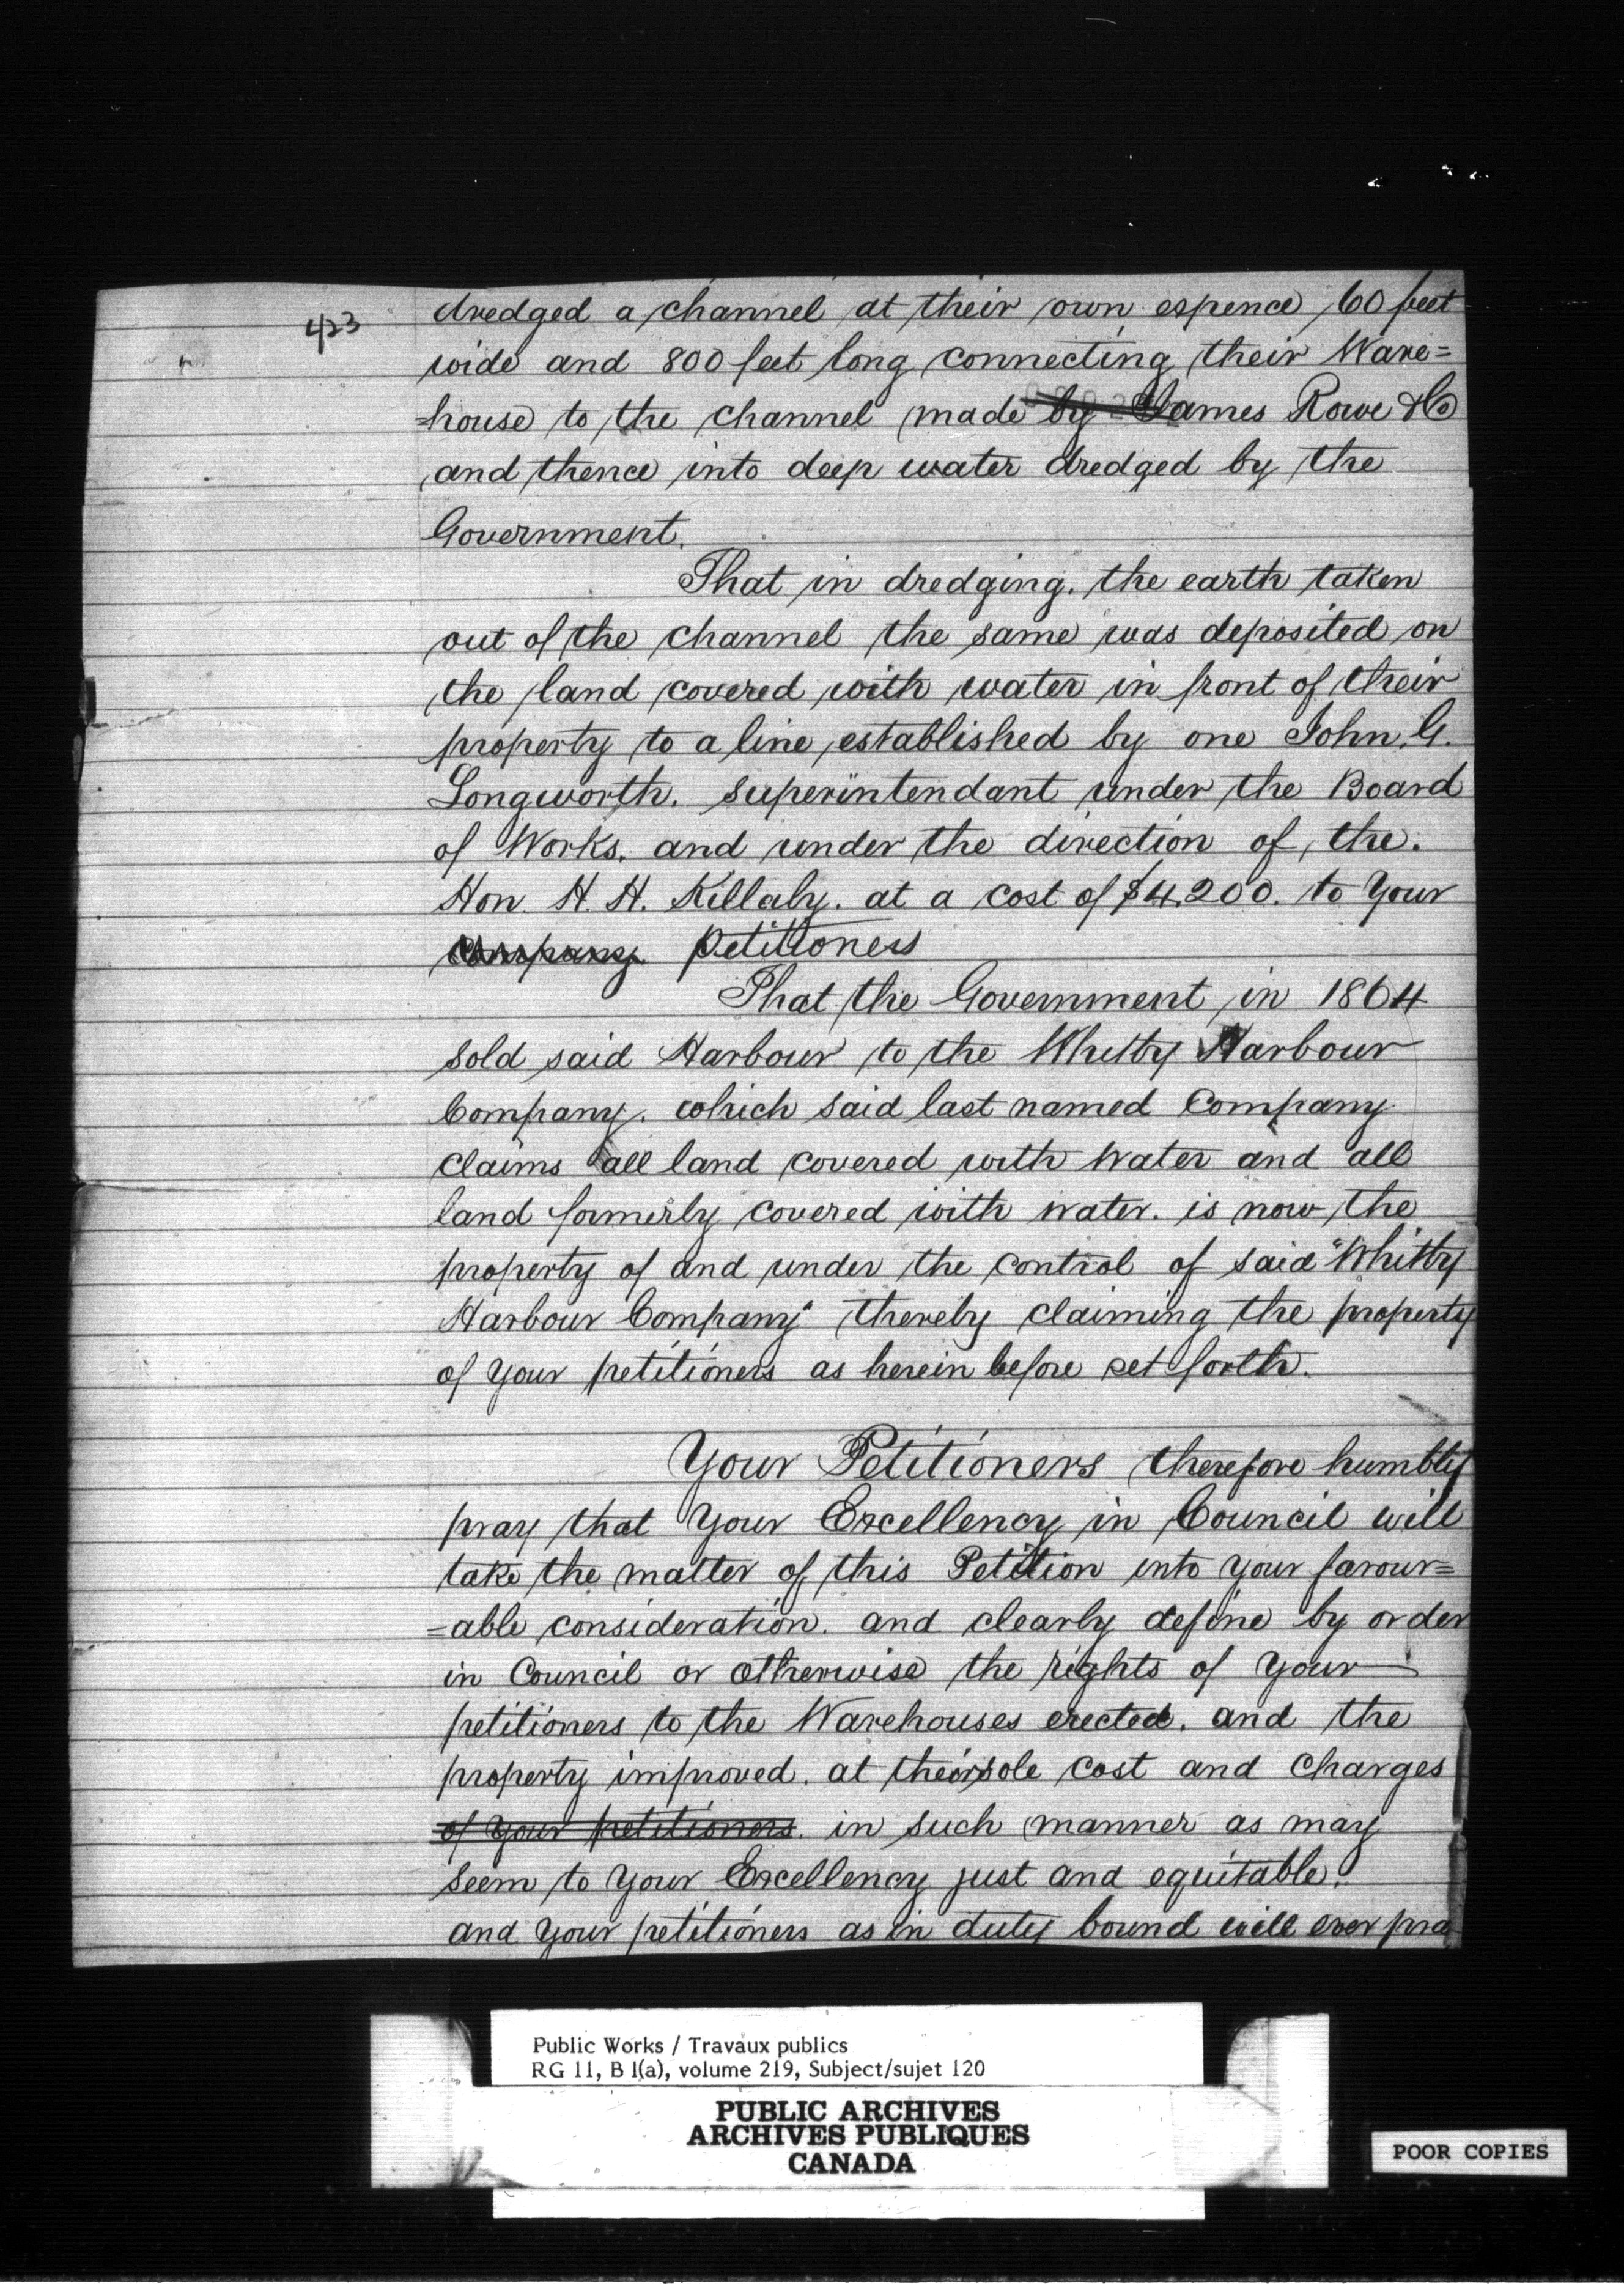 423
dredged a channel at their own expence 60 feet
wide and 800 feet long connecting their Ware=
=house to the channel made by James Rowe & Co
and thence into deep water dredged by the
Government.
That in dredging. the earth taken
out of the channel the same was deposited on
the land covered with water in front of their
property to a line established by one John. G.
Longworth. superintendant under the Board
of Works. and under the direction of the.
Hon. H. H. Killaly. at a cost of $4.200. to Your
Company. petitioners
That the Government in 1864
sold said Harbour to the Whitby Harbour
Company. which said last named Company
claims all land covered with Water and all
land formerly covered with water. is now the
property of and under the control of said "Whitby
Harbour Company" thereby claiming the property
of your petitioners as herein before set forth.
Your Petitioners therefore humbly
pray that Your Excellency in Council will
take the matter of this Petition into your favour=
=able consideration. and clearly define by order
in Council or otherwise the rights of Your
petitioners to the Warehouses erected. and the
property improved. at their sole cost and charges
of your petitioners. in such manner as may
seem to Your Excellency just and equitable.
and your petitioners as in duty bound will ever pra
Public Works / Travaux publics
RG 11, B 1(a), volume 219, Subject/sujet 120
PUBLIC ARCHIVES
ARCHIVES PUBLIQUES
CANADA
POOR COPIES